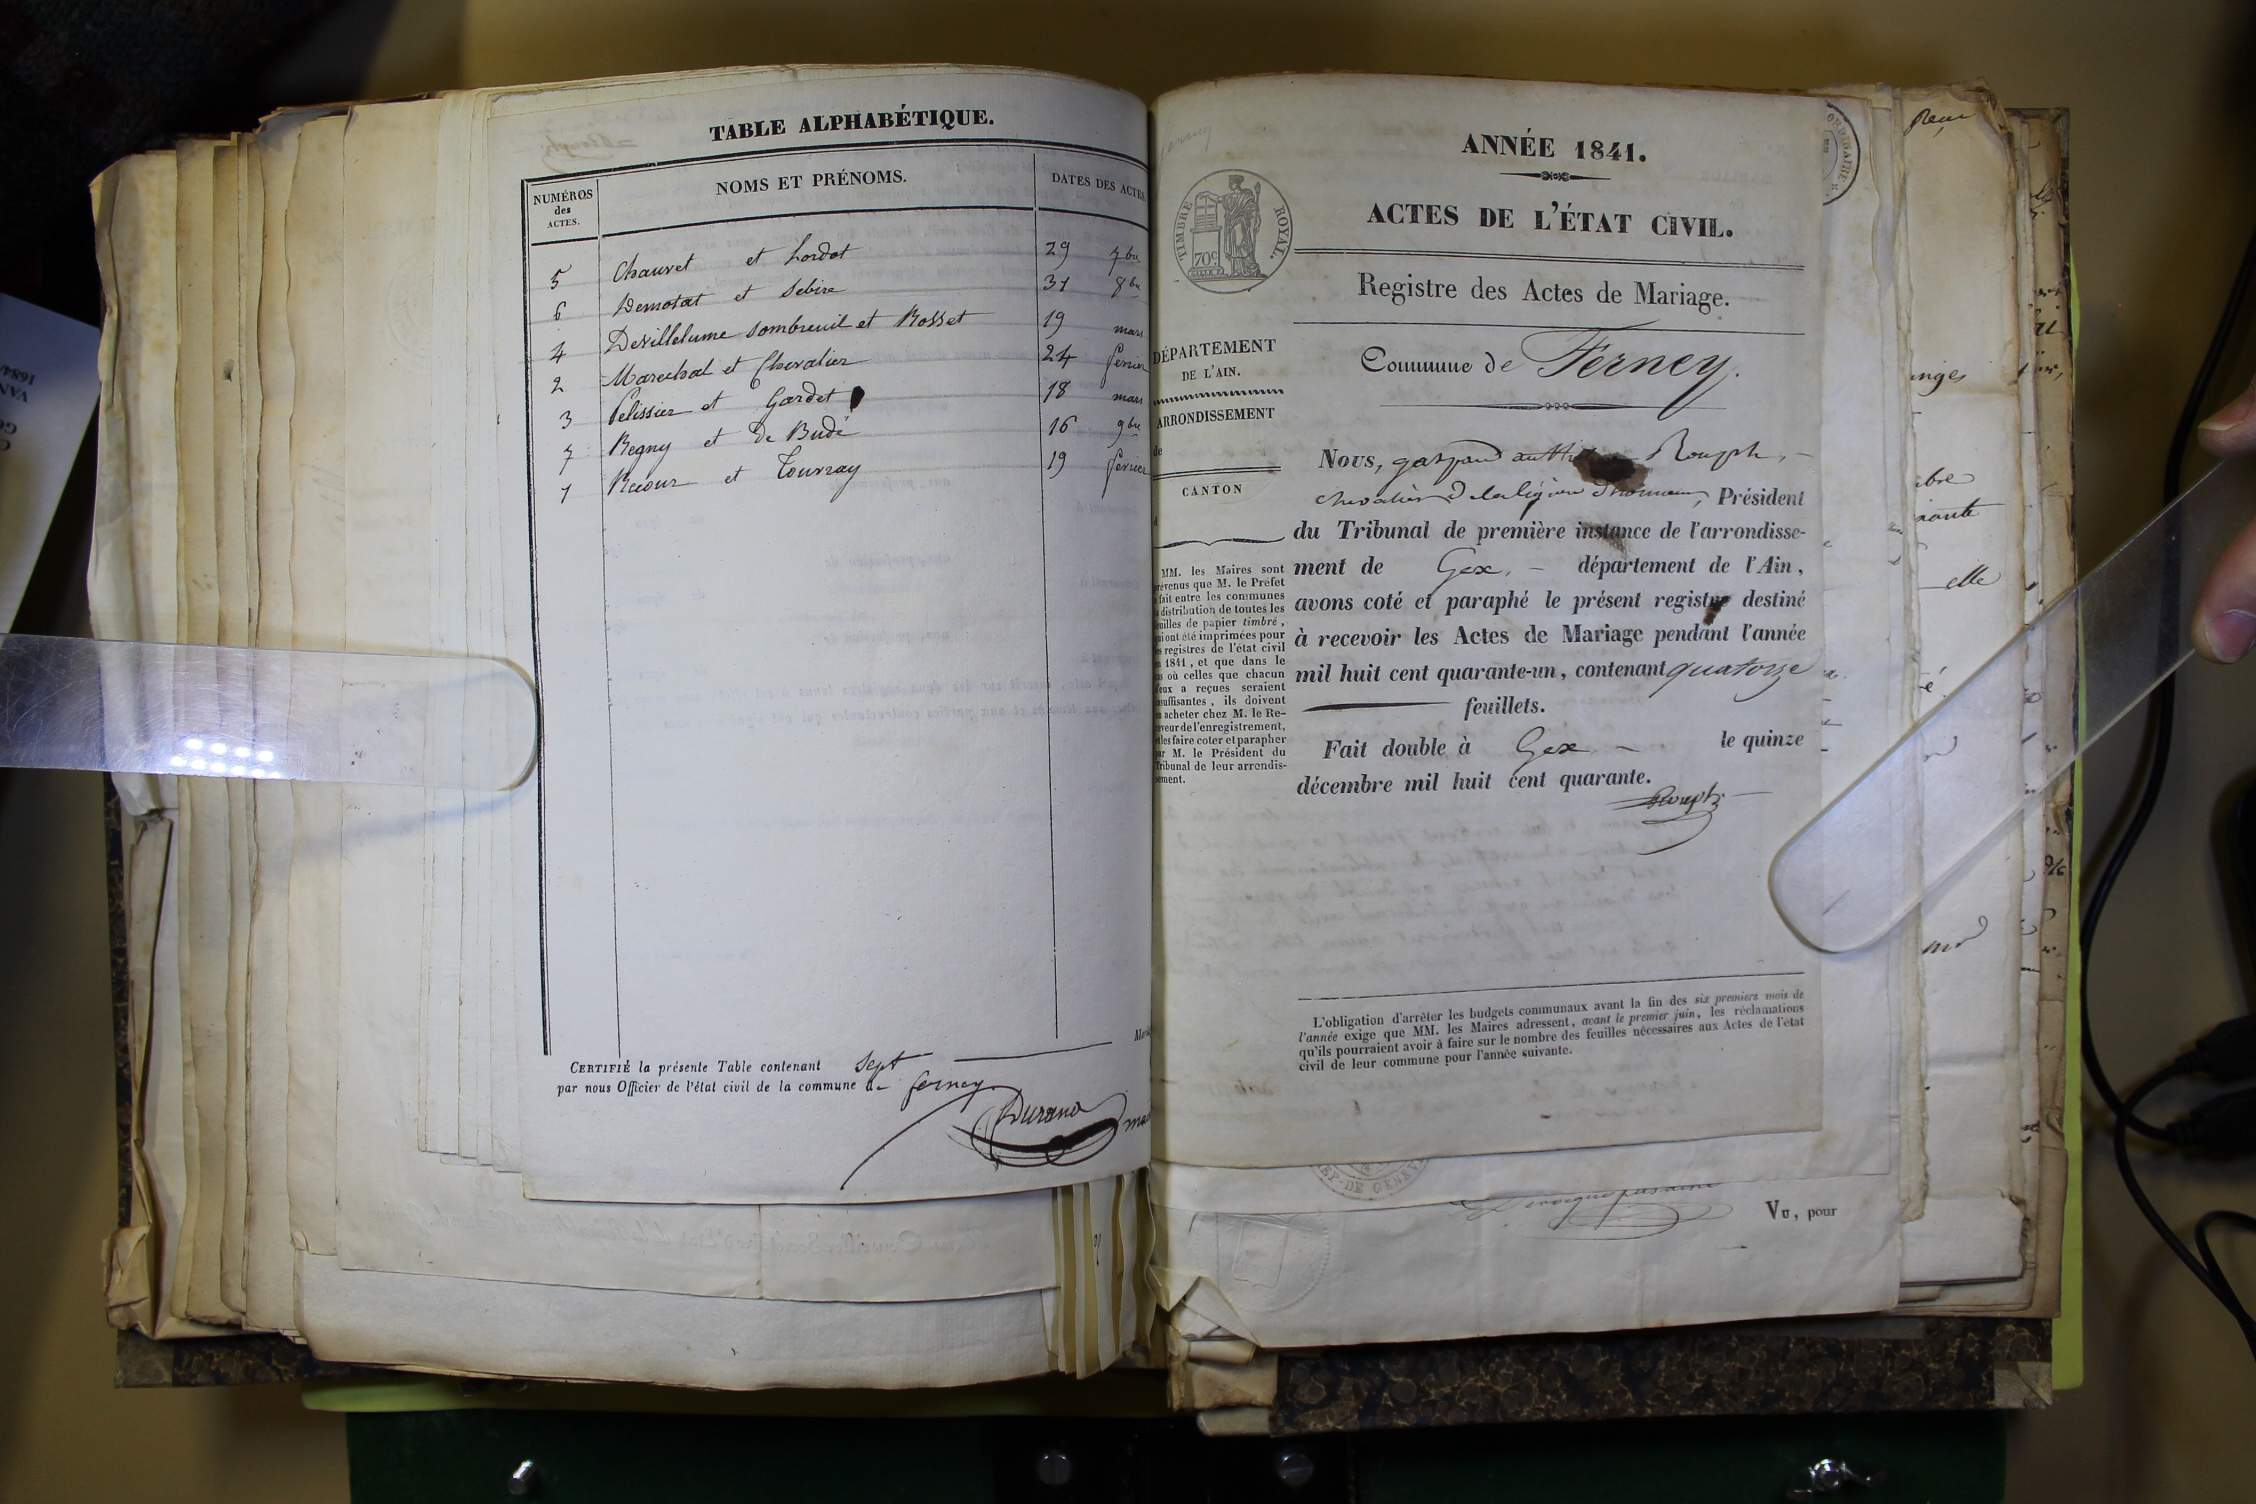 TABLE ALPHABÉTIQUE.
NUMÉROS
des
ACTES.
NOMS ET PRÉNOMS.
DATES DES ACTES
5 Chauvet et Lordot 29 7bre
6 Demotat et Sebire 31 8bre
4 Devillelume Sombreuil et Rosset 19 mars
2 Marechal et Chevalier 24 fevrier
3 Pelissier et Gardet 18 mars
7 Regny et De Budé 16 9bre
1 Recour et Tournay 19 fevrier
CERTIFIÉ la présente Table contenant sept
par nous Officier de l'état civil de la commune de ferney
Durand
ANNÉE 1841.
ACTES DE L'ÉTAT CIVIL.
TIMBRE ROYAL.
70c
Registre des Actes de Mariage.
Commune de Ferney.
DÉPARTEMENT
DE L'AIN.
ARRONDISSEMENT
de
CANTON
MM. les Maires sont
prévenus que M. le Préfet
fait entre les communes
distribution de toutes les
feuilles de papier timbré,
qui ont été imprimées pour
registres de l'état civil
1841, et que dans le
où celles que chacun
d'eux a reçues seraient
insuffisantes, ils doivent
acheter chez M. le Re-
ceveur de l'enregistrement,
les faire coter et parapher
par M. le Président du
Tribunal de leur arrondis-
sement.
Nous, gaspard Rouph,
chevalier de la légion d'honneur, Président
du Tribunal de première instance de l'arrondisse-
ment de Gex, département de l'Ain,
avons coté et paraphé le présent registre destiné
à recevoir les Actes de Mariage pendant l'année
mil huit cent quarante-un, contenant quatorze
feuillets.
Fait double à Gex le quinze
décembre mil huit cent quarante.
Rouph
L'obligation d'arrêter les budgets communaux avant la fin des six premiers mois de
l'année exige que MM. les Maires adressent, avant le premier juin, les réclamations
qu'ils pourraient avoir à faire sur le nombre des feuilles nécessaires aux Actes de l'état
civil de leur commune pour l'année suivante.
DE GENÈV
Vu, pour
elle